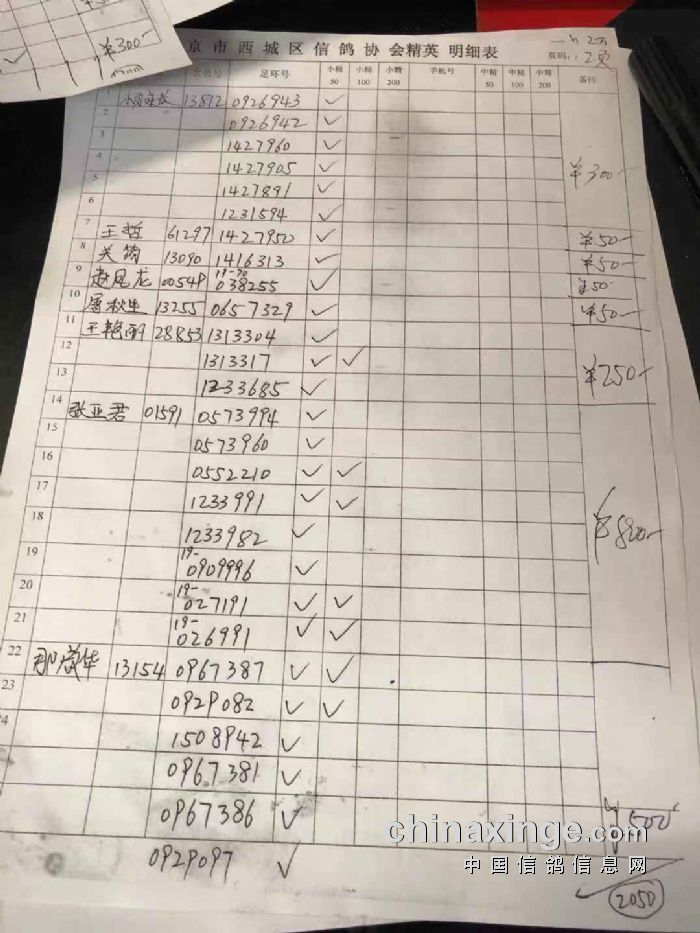 ¥300-
京市西城区信鸽协会精英 明细表
页码: 2页
号 足环号 小精50 小精100 小精200 手机号 中精50 中精100 中精200 备注
13812 0926943 ✓
2 0926942 ✓
3 1427960 ✓
4 1427905 ✓ ¥300-
5 1427891 ✓
6 1231594 ✓
7 王哲 61297 1427950 ✓ ¥50-
8 关钧 13090 1416313 ✓ ¥50-
9 赵凤龙 00549 19-30 038255 ✓ ¥50-
10 屠秋生 13255 0657329 ✓ ¥50-
11 王艳丽 28853 1313304 ✓
12 1313317 ✓ ✓ ¥250-
13 1233685 ✓
14 张亚君 01591 0573994 ✓
15 0573960 ✓
16 0552210 ✓ ✓
17 1233991 ✓ ✓
18 1233982 ✓
19 19-0909996 ✓
20 19-027191 ✓ ✓
21 19-026991 ✓ ✓
22 13154 0967387 ✓ ✓
23 0929082 ✓ ✓
1508942 ✓
0967381 ✓
0967386 ✓
0929097 ✓
chinaxinge.com
中国信鸽信息网
2050